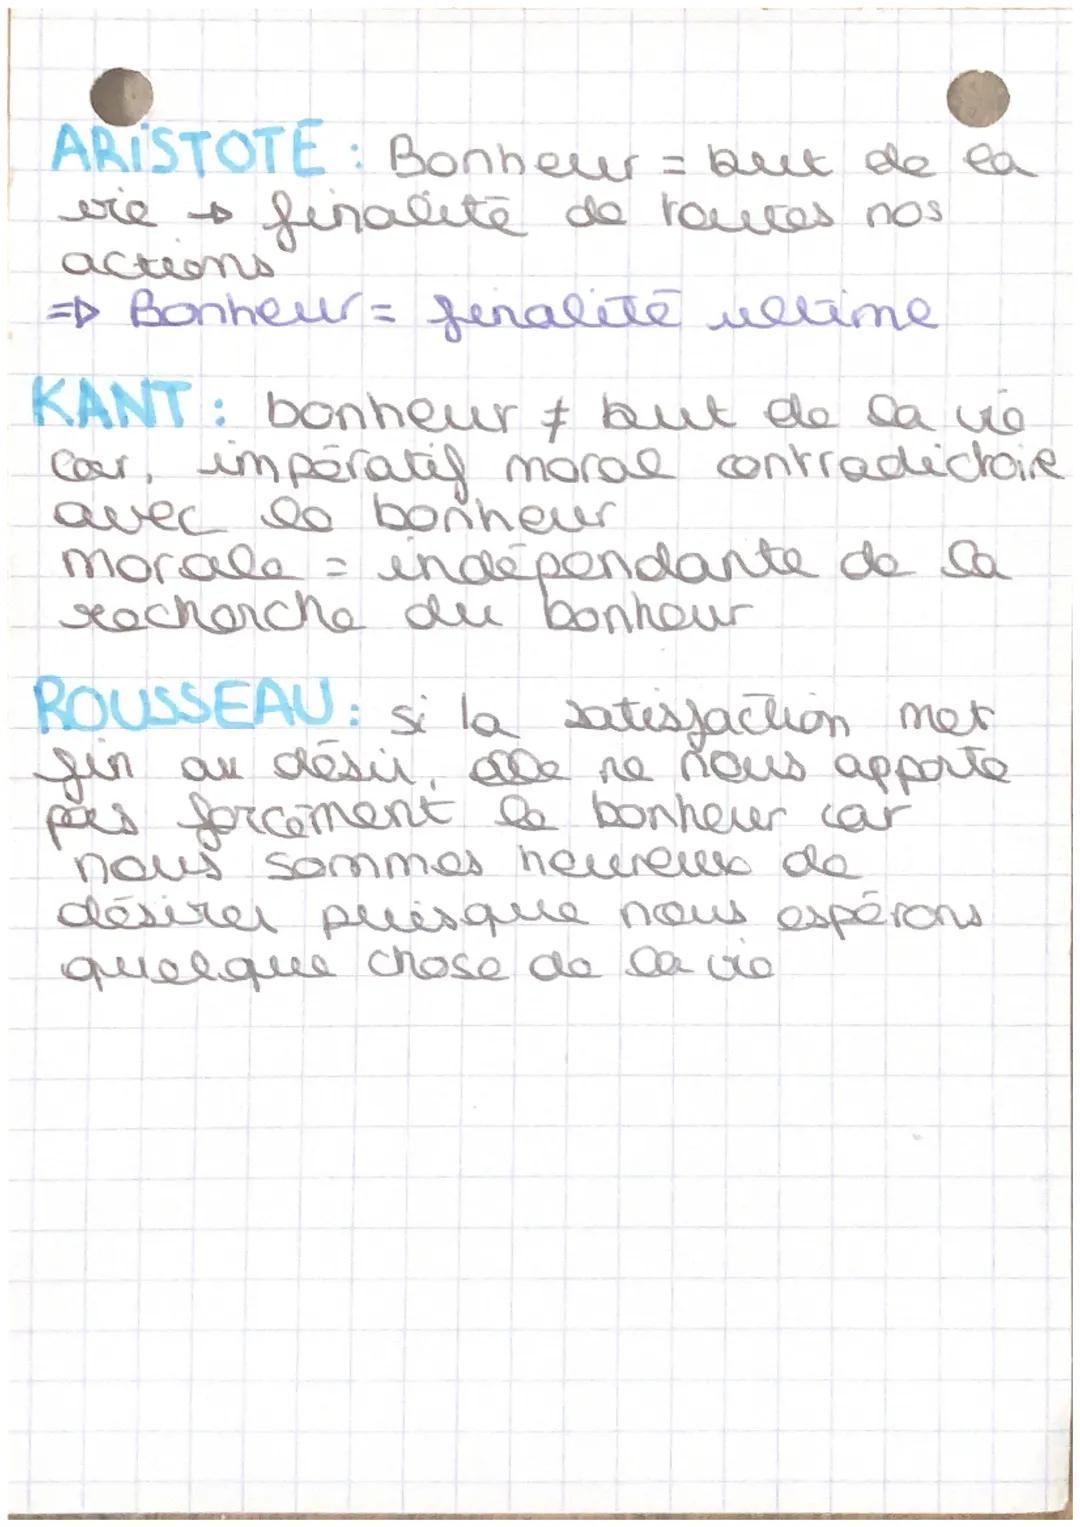 ARISTOTE : Bonheur = but de la
vie → finalité de toutes nos
actions
=> Bonheur = finalité ultime
KANT : bonheur ≠ but de la vie
car, impératif moral contradictoire
avec le bonheur
morale = indépendante de la
recherche du bonheur
ROUSSEAU : si la satisfaction met
fin au désir, elle ne nous apporte
pas forcément le bonheur car
nous sommes heureux de
désirer puisque nous espérons
quelque chose de la vie